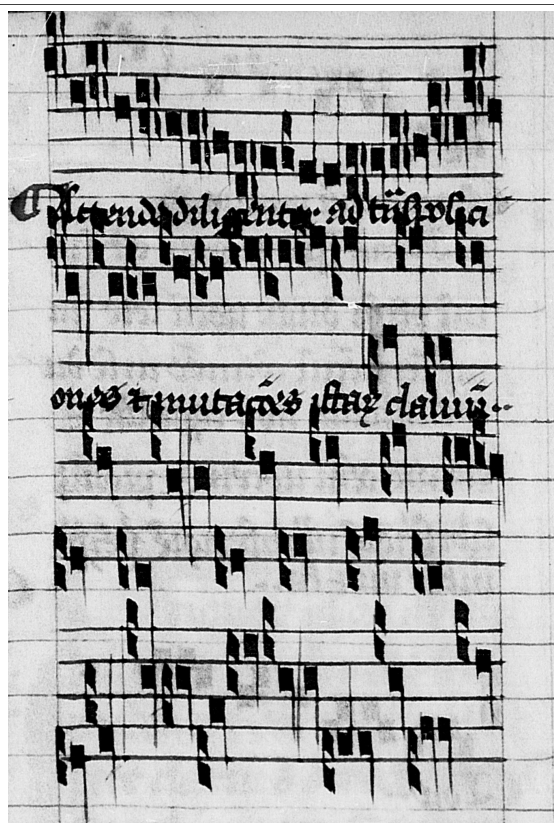 Attende diligenter ad t̄nsposici
ones & mutac̄oēs istaꝝ clauiū..